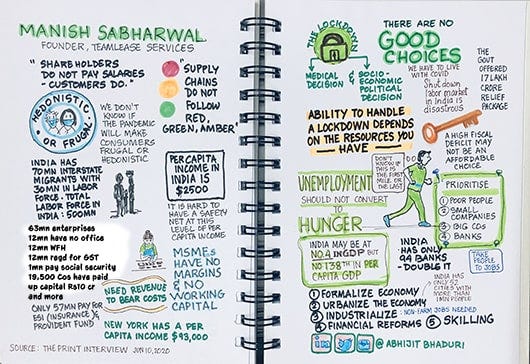 MANISH SABHARWAL
FOUNDER, TEAMLEASE SERVICES
"SHAREHOLDERS
DO NOT PAY SALARIES
- CUSTOMERS DO."
"SUPPLY
CHAINS
DO NOT
FOLLOW
RED,
GREEN, AMBER"
HEDONISTIC
OR FRUGAL
WE DON'T
KNOW IF
THE PANDEMIC
WILL MAKE
CONSUMERS
FRUGAL OR
HEDONISTIC
INDIA HAS
70MN INTERSTATE
MIGRANTS WITH
30MN IN LABOR
FORCE. TOTAL
LABOR FORCE IN
INDIA : 500MN
PER CAPITA
INCOME IN
INDIA IS
$2500
IT IS HARD TO
HAVE A SAFETY
NET AT THIS
LEVEL OF PER
CAPITA INCOME
63mn enterprises
12mn have no office
12mn WFH
12mn regd for GST
1mn pay social security
19,500 Cos have paid
up capital Rs10 cr
and more
MSMEs
HAVE NO
MARGINS
& NO
WORKING
CAPITAL
NEED REVENUE
TO BEAR COSTS
ONLY 57MN PAY FOR
ESI (INSURANCE) &
PROVIDENT FUND
NEW YORK HAS A PER
CAPITA INCOME $93,000
SOURCE: THE PRINT INTERVIEW JUN 10, 2020
THE LOCKDOWN
MEDICAL
DECISION
SOCIO-
ECONOMIC
POLITICAL
DECISION
THERE ARE NO
GOOD
CHOICES
WE HAVE TO LIVE
WITH COVID
Shut down
labor market
in India is
disastrous
THE
GOVT
OFFERED
17 LAKH
CRORE
RELIEF
PACKAGE
ABILITY TO HANDLE
A LOCKDOWN DEPENDS
ON THE RESOURCES YOU
HAVE
A HIGH FISCAL
DEFICIT MAY
NOT BE AN
AFFORDABLE
CHOICE.
DON'T
KNOW IF
THIS IS THE
FIRST MILE, OR
THE LAST
UNEMPLOYMENT
SHOULD NOT CONVERT
TO
HUNGER
PRIORITISE
1 POOR PEOPLE
2 SMALL
COMPANIES
3 BIG COs
4 BANKS
INDIA MAY BE AT
No.4 IN GDP BUT
No 138TH IN PER
CAPITA GDP
INDIA
HAS ONLY
94 BANKS
- DOUBLE IT
TAKE
PEOPLE
TO JOBS
INDIA HAS
ONLY 52
CITIES WITH
MORE THAN
1MN PEOPLE
1 FORMALIZE ECONOMY
2 URBANIZE THE ECONOMY
3 INDUSTRIALIZE : NON-FARM JOBS NEEDED
4 FINANCIAL REFORMS 5 SKILLING
in
@ ABHIJIT BHADURI